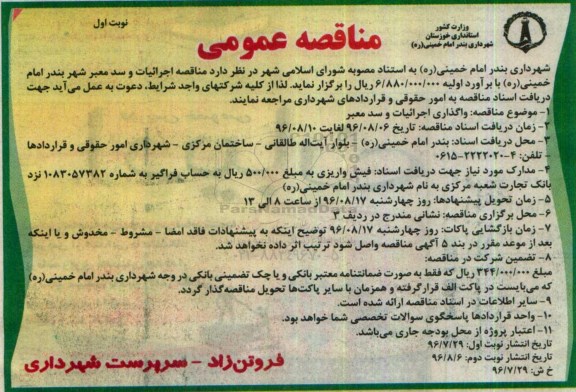 نوبت اول
وزارت کشور
استانداری خوزستان
شهرداری بندر امام خمینی(ره)
مناقصه عمومی
شهرداری بندر امام خمینی(ره) به استناد مصوبه شورای اسلامی شهر در نظر دارد مناقصه اجرائیات و سد معبر شهر بندر امام
خمینی(ره) با برآورد اولیه ۶/۸۸۰/۰۰۰/۰۰۰ ریال را برگزار نماید. لذا از کلیه شرکتهای واجد شرایط، دعوت به عمل می‌آید جهت
دریافت اسناد مناقصه به امور حقوقی و قراردادهای شهرداری مراجعه نمایند.
۱- موضوع مناقصه: واگذاری اجرائیات و سد معبر
۲- زمان دریافت اسناد مناقصه: تاریخ ۹۶/۰۸/۰۶ لغایت ۹۶/۰۸/۱۰
۳- محل دریافت اسناد: بندر امام خمینی(ره) - بلوار آیت‌اله طالقانی - ساختمان مرکزی - شهرداری امور حقوقی و قراردادها
- تلفن: ۴-۲۲۲۲۰۲۰-۰۶۱۵
۴- مدارک مورد نیاز جهت دریافت اسناد: فیش واریزی به مبلغ ۵۰۰/۰۰۰ ریال به حساب فراگیر به شماره ۱۰۸۳۰۵۷۳۸۲ نزد
بانک تجارت شعبه مرکزی به نام شهرداری بندر امام خمینی(ره)
۵- زمان تحویل پیشنهادها: روز چهارشنبه ۹۶/۰۸/۱۷ از ساعت ۸ الی ۱۳
۶- محل برگزاری مناقصه: نشانی مندرج در ردیف ۳
۷- زمان بازگشایی پاکات: روز چهارشنبه ۹۶/۰۸/۱۷ توضیح اینکه به پیشنهادات فاقد امضا - مشروط - مخدوش و یا اینکه
بعد از موعد مقرر در بند ۵ آگهی مناقصه واصل شود ترتیب اثر داده نخواهد شد.
۸- تضمین شرکت در مناقصه:
مبلغ ۳۴۴/۰۰۰/۰۰۰ ریال که فقط به صورت ضمانتنامه معتبر بانکی و یا چک تضمینی بانکی در وجه شهرداری بندر امام خمینی(ره)
که می‌بایست در پاکت الف قرار گرفته و همزمان با سایر پاکت‌ها تحویل مناقصه‌گذار گردد.
۹- سایر اطلاعات در اسناد مناقصه ارائه شده است.
۱۰- واحد قراردادها پاسخگوی سوالات تخصصی شما خواهد بود.
۱۱- اعتبار پروژه از محل بودجه جاری می‌باشد.
تاریخ انتشار نوبت اول: ۹۶/۷/۲۹
تاریخ انتشار نوبت دوم: ۹۶/۸/۶
خ ش: ۹۶/۷/۲۹
فروتن‌زاد - سرپرست شهرداری